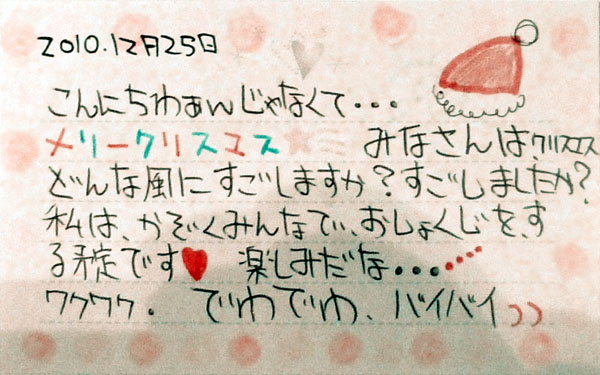 2010.12月25日
こんにちわぁんじゃなくて・・・
メリークリスマス★ミ みなさんは、クリスマス
どんな風にすごしますか？すごしましたか？
私は、かぞくみんなで、おしょくじを、す
る予定です♥ 楽しみだな・・・・・・・・
ワクワク・ でわでわ、バイバイ